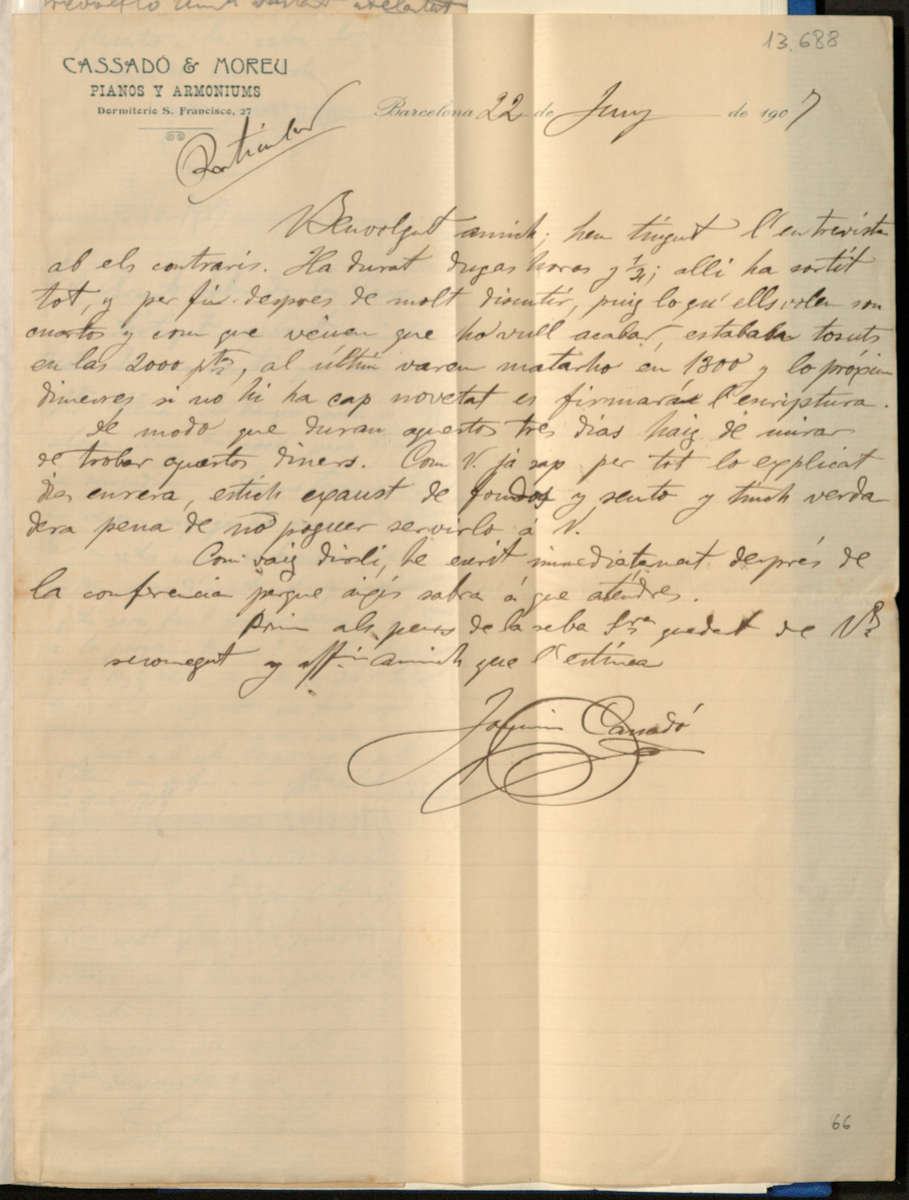 13.688
CASSADÓ & MOREU
PIANOS Y ARMONIUMS
Dormitorio S. Francisco, 27
Barcelona 22 de Juny de 1907
Particular
Benvolgut amich; hem tingut l'entrevista
ab els contraris. Ha durat dugas horas y ½; alli ha sortit
tot, y per fi despres de molt discutir, puig lo qu' ells volen son
cuartos y com que veuen que ho vull acabar, estaban tosuts
en las 2000 ptas, al últim varem matarho en 1300 y lo próxim
dimecres si no hi ha cap novetat es firmará l'escriptura.
De modo que durant aquestos tres dias haig de mirar
de trobar aquestos diners. Com V. já sap per tot lo explicat
dias enrera, estich exaust de fondos y sento y tinch verda
dera pena de no poguer servirlo á V.
Com vaig dirli, he escrit inmediatament després de
la conferencia perque aixís sabra á que aténdres.
als peus de la seba Sra quedat de V.
reconegut y affm amich que l'estima
Joaquim Cassadó
66